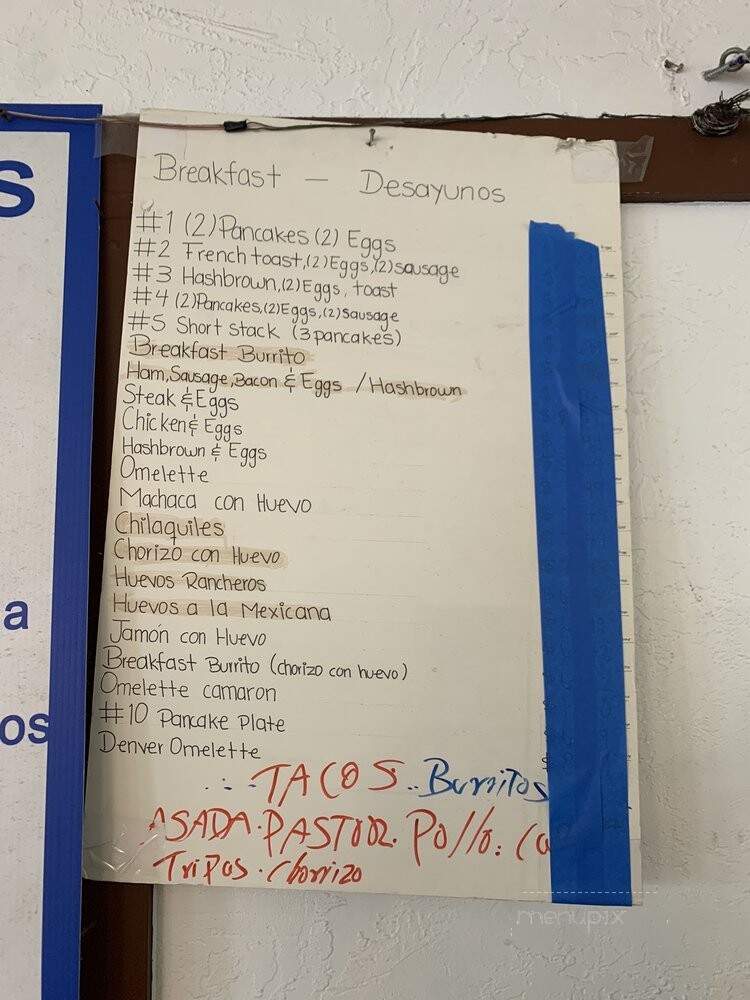 s
Breakfast — Desayunos
#1 (2) Pancakes (2) Eggs
#2 French toast, (2) Eggs, (2) sausage
#3 Hashbrown, (2) Eggs, toast
#4 (2) Pancakes, (2) Eggs, (2) Sausage
#5 Short stack (3 pancakes)
Breakfast Burrito
Ham, Sausage, Bacon & Eggs / Hashbrown
Steak & Eggs
Chicken & Eggs
Hashbrown & Eggs
Omelette
Machaca con Huevo
Chilaquiles
Chorizo con Huevo
Huevos Rancheros
Huevos a la Mexicana
a
Jamón con Huevo
Breakfast Burrito (chorizo con huevo)
Omelette camaron
#10 Pancake Plate
os
Denver Omelette
TACOS.. Burritos
ASADA. PASTOR. Pollo.
Tripas. Chorizo
menupix